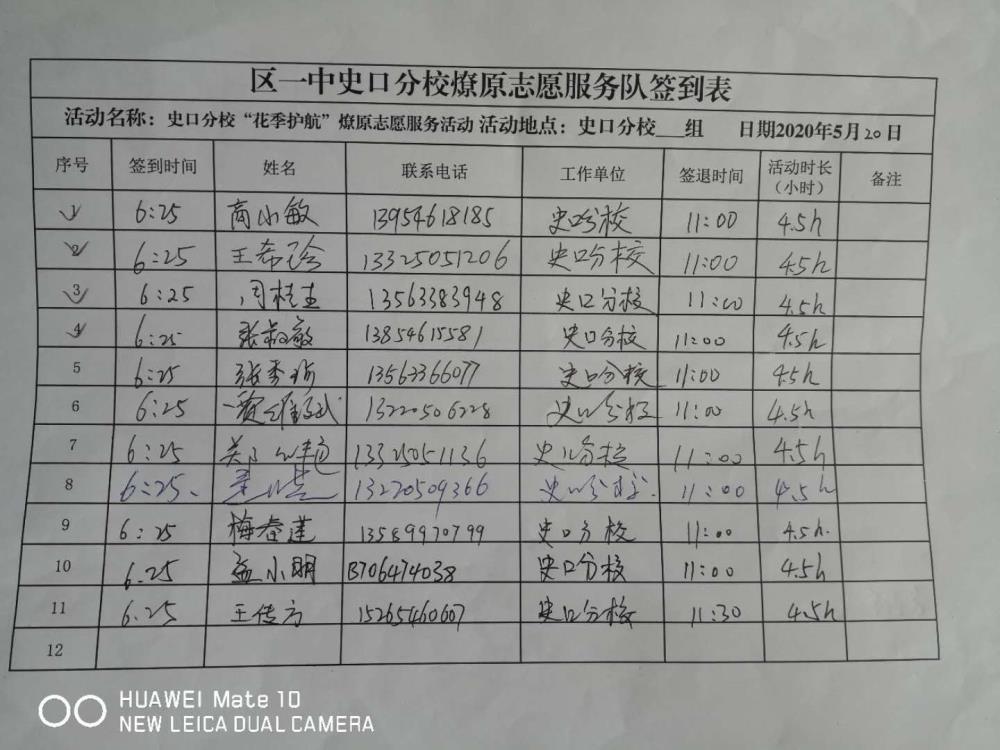 区一中史口分校燎原志愿服务队签到表
活动名称：史口分校“花季护航”燎原志愿服务活动 活动地点：史口分校___组 日期2020年5月20日
序号 签到时间 姓名 联系电话 工作单位 签退时间 活动时长（小时） 备注
1 6:25 高小敏 13954618185 史口分校 11:00 4.5h
2 6:25 王希玲 13325051206 史口分校 11:00 4.5h
3 6:25 周桂 13563383948 史口分校 11:00 4.5h
4 6:25 张敏 13854615581 史口分校 11:00 4.5h
5 6:25 张秀 13563366077 史口分校 11:00 4.5h
6 6:25 13220506228 史口分校 11:00 4.5h
7 6:25 郑艳 13325051136 史口分校 11:00 4.5h
8 6:25. 13220509366 史口分校. 11:00 4.5h
9 6:25 梅春莲 13589970799 史口分校 11:00 4.5h.
10 6.25 孟小明 13706414038 史口分校 11:00 4.5h
11 6.25 王传方 15265460607 史口分校 11:30 4.5h
12
HUAWEI Mate 10
NEW LEICA DUAL CAMERA